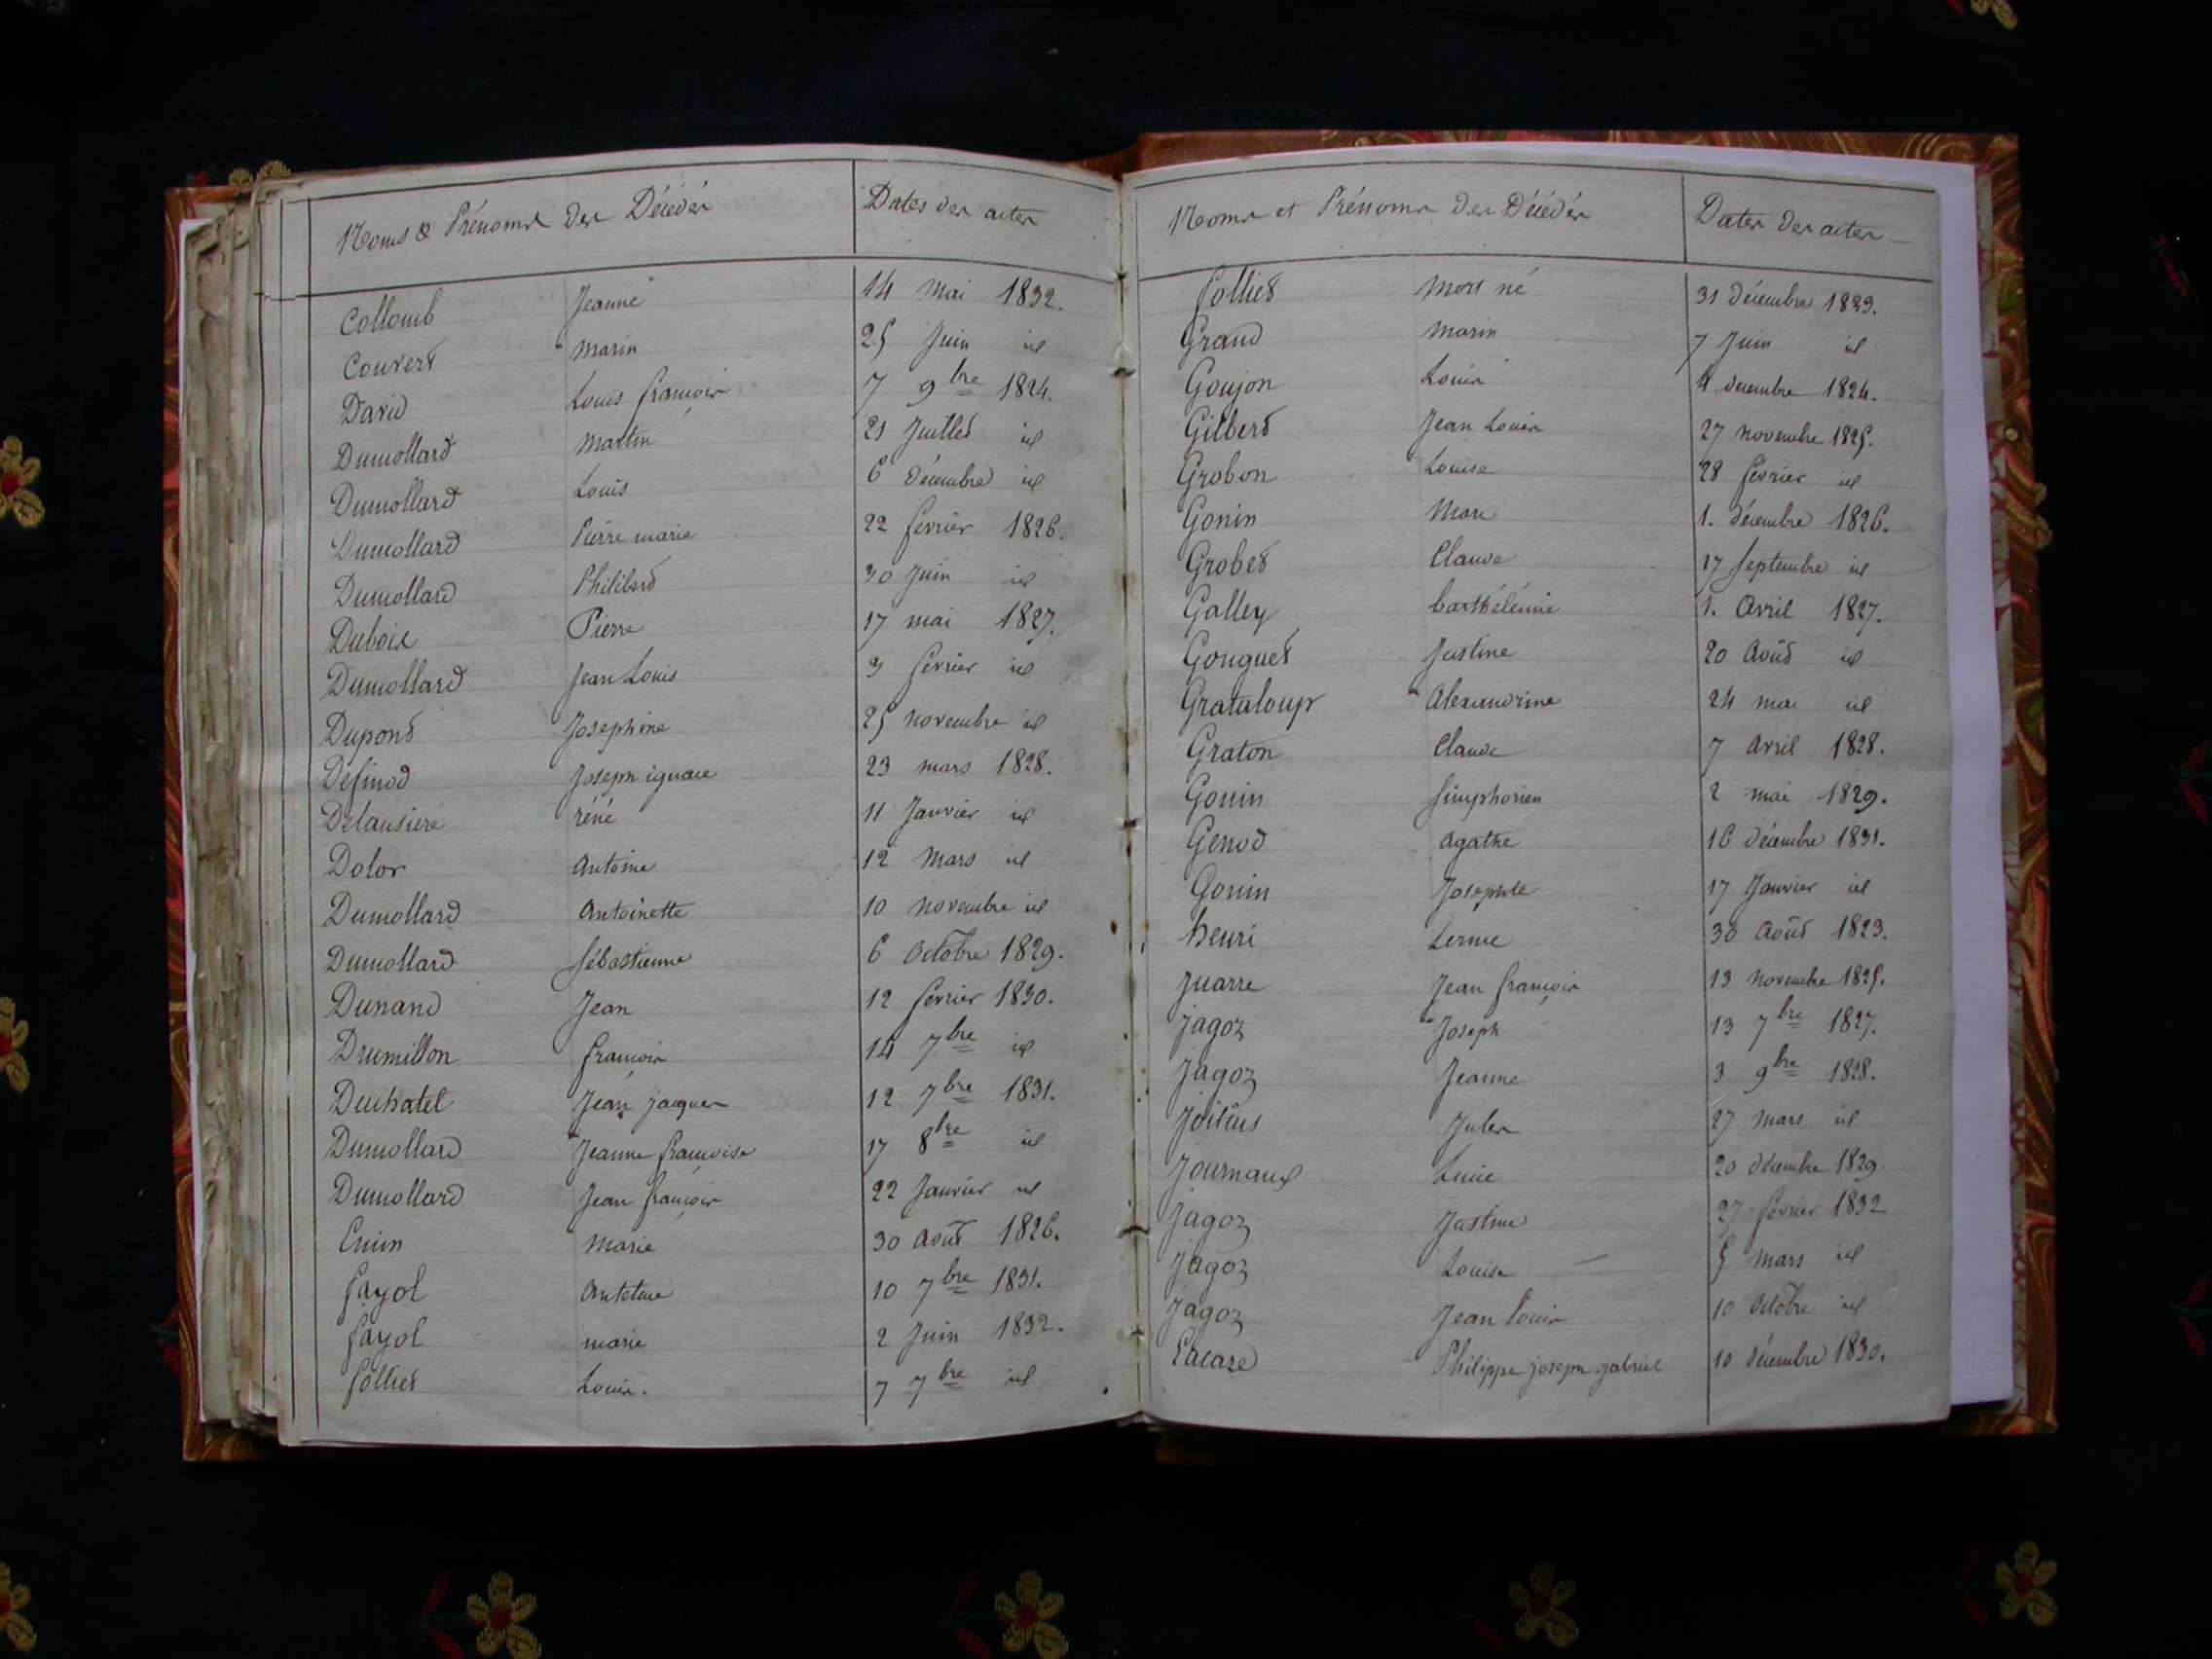 Noms & Prénoms des Décédés Dates des actes
Collomb Jeanne 14 Mai 1832.
Couvert Marin 25 Juin id
David Louis françois 7 9bre 1824.
Dumollard Martin 21 Juillet id
Dumollard Louis 6 Décembre id
Dumollard Pierre marie 22 fevrier 1826.
Dumollard Philibert 30 Juin id
Dubois Pierre 17 mai 1827.
Dumollard Jean Louis 3 fevrier id
Dupont Josephine 25 novembre id
Definod Joseph ignace 23 mars 1828.
Delausiere réné 11 Janvier id
Dolor Antoine 12 Mars id
Dumollard Antoinette 10 novembre id
Dumollard Sébastienne 6 Octobre 1829.
Dunand Jean 12 fevrier 1830.
Drumillon françois 14 7bre id
Duchatel Jean jacques 12 7bre 1831.
Dumollard Jeanne françoise 17 8bre id
Dumollard Jean françois 22 Janvier id
Marie 30 Août 1826.
fayol Antelme 10 7bre 1831.
fayol marie 2 Juin 1832.
folliet Louis. 7 7bre id
Noms et Prénoms des Décédés Dates des actes
folliet Mort né 31 décembre 1823.
Grand Marin 7 Juin id
Goujon Louis 4 decembre 1824.
Gilbert Jean Louis 27 novembre 1825.
Grobon Louise 28 fevrier id
Gonin Marie 1. décembre 1826.
Grobet Claude 17 Septembre id
Galley barthélémie 1. Avril 1827.
Gonguet Justine 20 Août id
Grataloup Alexandrine 24 mai id
Graton Claude 7 Avril 1828.
Gonin Simphorien 2 mai 1829.
Genod Agathe 16 décembre 1831.
Gonin Josephte 17 Janvier id
henri 30 Août 1823.
Juarre Jean françois 13 novembre 1825.
Jagoz Joseph 13 7bre 1827.
Jagoz Jeanne 3 9bre 1828.
Jules 27 mars id
Journaux Lucie 20 décembre 1829.
Jagoz Justine 27 fevrier 1832
Jagoz Louise 5 mars id
Jagoz Jean louis 10 Octobre id
Lacaze Philippe joseph gabriel 10 décembre 1830.